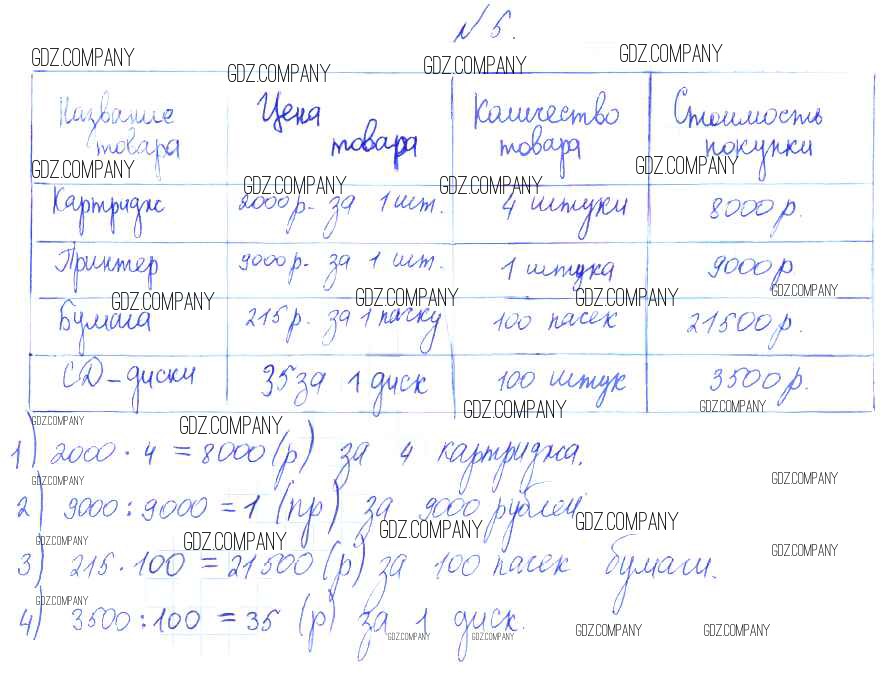 № 5.
GDZ.COMPANY GDZ.COMPANY GDZ.COMPANY GDZ.COMPANY
Название товара Цена товара Количество товара Стоимость покупки
GDZ.COMPANY GDZ.COMPANY GDZ.COMPANY GDZ.COMPANY
Картридж 2000р. за 1 шт. 4 штуки 8000р.
Принтер 9000р. за 1 шт. 1 штука 9000р
GDZ.COMPANY GDZ.COMPANY GDZ.COMPANY GDZ.COMPANY
Бумага 215р. за 1 пачку 100 пасек 21500р.
CD-диски 35 за 1 диск 100 штук 3500р.
GDZ.COMPANY GDZ.COMPANY GDZ.COMPANY GDZ.COMPANY
1) 2000 · 4 = 8000 (р) за 4 картриджа.
GDZ.COMPANY GDZ.COMPANY
2) 9000 : 9000 = 1 (пр) за 9000 рублей
GDZ.COMPANY GDZ.COMPANY GDZ.COMPANY GDZ.COMPANY GDZ.COMPANY
3) 215 · 100 = 21500 (р) за 100 пасек бумаги.
GDZ.COMPANY
4) 3500 : 100 = 35 (р) за 1 диск.
GDZ.COMPANY GDZ.COMPANY GDZ.COMPANY GDZ.COMPANY